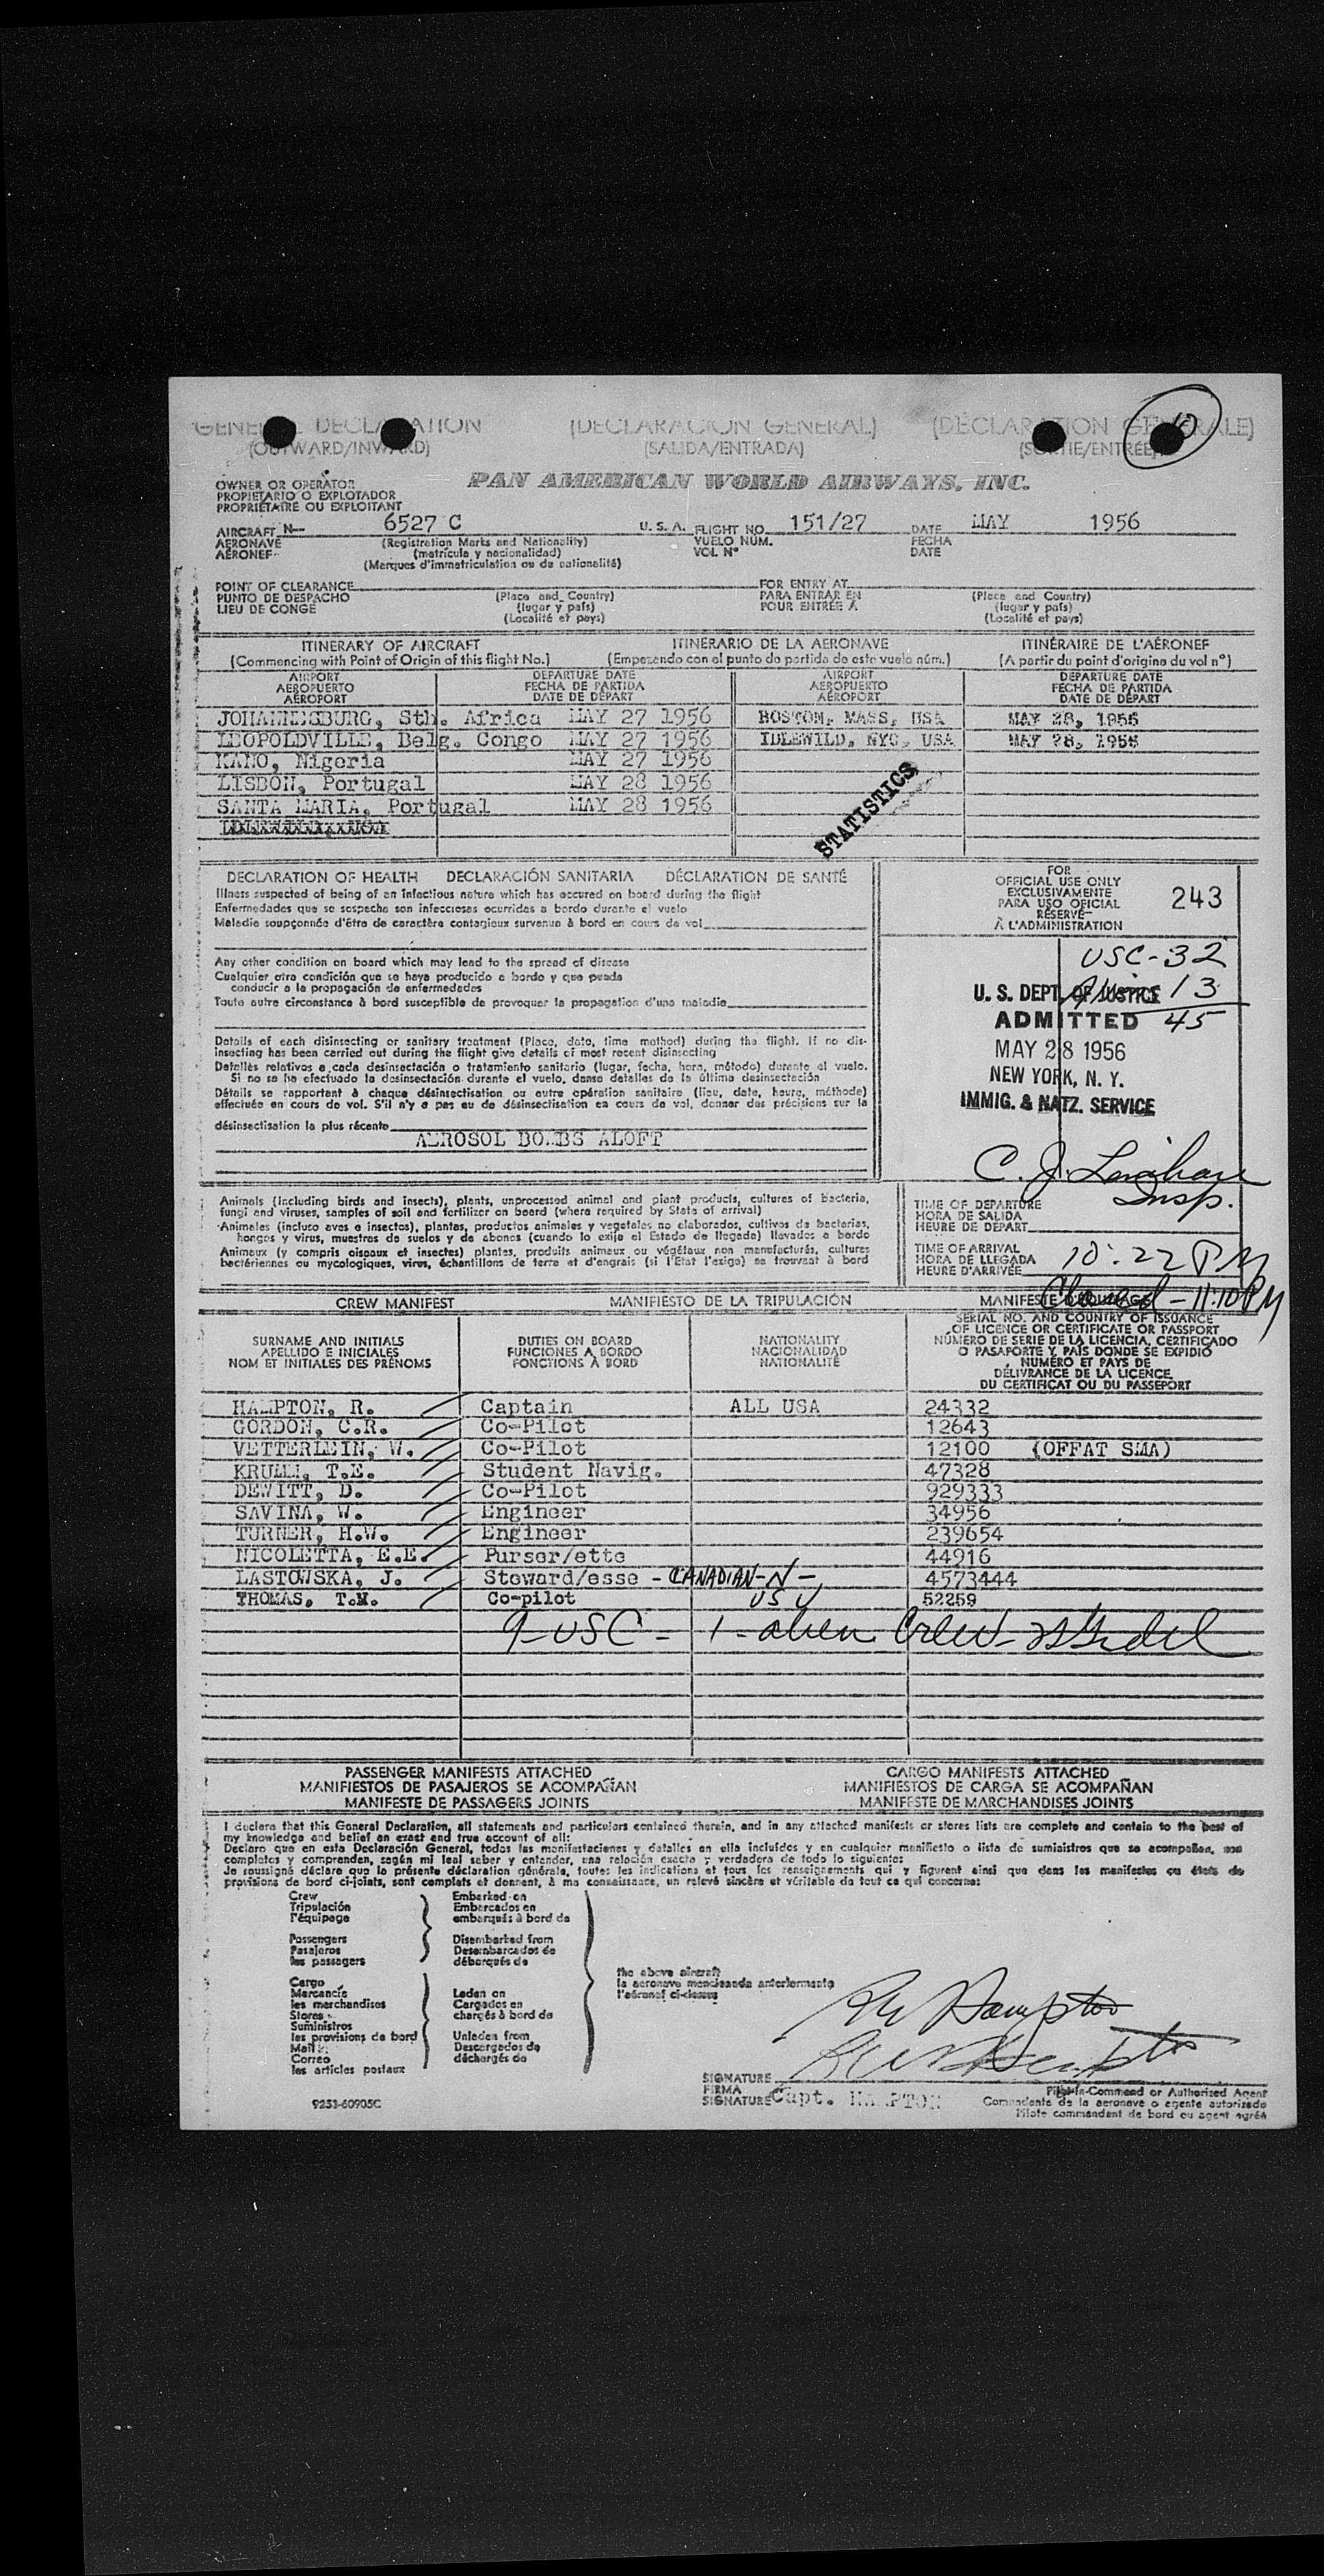 GENERAL DECLARATION (DECLARACION GENERAL) (DÉCLARATION GÉNÉRALE)
10
(OUTWARD/INWARD) (SALIDA/ENTRADA) (SORTIE/ENTRÉE)
OWNER OR OPERATOR
PROPIETARIO O EXPLOTADOR
PROPRIÉTAIRE OU EXPLOITANT
PAN AMERICAN WORLD AIRWAYS, INC.
AIRCRAFT N— 6527 C U. S. A. FLIGHT NO. 151/27 DATE MAY 1956
AERONAVE (Registration Marks and Nationality) VUELO NÚM. FECHA
AÉRONEF (matrícula y nacionalidad) VOL N° DATE
(Marques d'immatriculation ou de nationalité)
POINT OF CLEARANCE FOR ENTRY AT
PUNTO DE DESPACHO (Place and Country) PARA ENTRAR EN (Place and Country)
LIEU DE CONGÉ (lugar y país) POUR ENTRÉE À (lugar y país)
(Localité et pays) (Localité et pays)
ITINERARY OF AIRCRAFT ITINERARIO DE LA AERONAVE ITINÉRAIRE DE L'AÉRONEF
(Commencing with Point of Origin of this flight No.) (Empezando con el punto de partida de este vuelo núm.) (A partir du point d'origine du vol n°)
AIRPORT DEPARTURE DATE AIRPORT DEPARTURE DATE
AEROPUERTO FECHA DE PARTIDA AEROPUERTO FECHA DE PARTIDA
AÉROPORT DATE DE DÉPART AÉROPORT DATE DE DÉPART
JOHANNESBURG, Sth. Africa MAY 27 1956 BOSTON, MASS, USA MAY 28, 1956
LEOPOLDVILLE, Belg. Congo MAY 27 1956 IDLEWILD, NYC, USA MAY 28, 1956
KANO, Nigeria MAY 27 1956
LISBON, Portugal MAY 28 1956
SANTA MARIA, Portugal MAY 28 1956
STATISTICS
DECLARATION OF HEALTH DECLARACIÓN SANITARIA DÉCLARATION DE SANTÉ
Illness suspected of being of an infectious nature which has occured on board during the flight
Enfermedades que se sospecha son infecciosas ocurridas a bordo durante el vuelo
Maladie soupçonnée d'être de caractère contagieux survenue à bord en cours de vol
Any other condition on board which may lead to the spread of disease
Cualquier otra condición que se haya producido a bordo y que pueda
conducir a la propagación de enfermedades
Toute autre circonstance à bord susceptible de provoquer la propagation d'une maladie
Details of each disinsecting or sanitary treatment (Place, date, time method) during the flight. If no dis-
insecting has been carried out during the flight give details of most recent disinsecting
Detalles relativos a cada desinsectación o tratamiento sanitario (lugar, fecha, hora, método) durante el vuelo.
Si no se ha efectuado la desinsectación durante el vuelo, dense detalles de la última desinsectación
Détails se rapportant à chaque désinsectisation ou autre opération sanitaire (lieu, date, heure, méthode)
effectuée en cours de vol. S'il n'y a pas eu de désinsectisation en cours de vol, donner des précisions sur la
désinsectisation la plus récente
AEROSOL BOMBS ALOFT
FOR
OFFICIAL USE ONLY
EXCLUSIVAMENTE
PARA USO OFICIAL
RÉSERVÉ
À L'ADMINISTRATION
243
USC-32
13
45
U. S. DEPT. OF JUSTICE
ADMITTED
MAY 28 1956
NEW YORK, N. Y.
IMMIG. & NATZ. SERVICE
C. J.
Insp.
Animals (including birds and insects), plants, unprocessed animal and plant products, cultures of bacteria,
fungi and viruses, samples of soil and fertilizer on board (where required by State of arrival)
Animales (incluso aves e insectos), plantas, productos animales y vegetales no elaborados, cultivos de bacterias,
hongos y virus, muestras de suelos y de abonos (cuando lo exija el Estado de llegada) llevados a bordo
Animaux (y compris oiseaux et insectes) plantes, produits animaux ou végétaux non manufacturés, cultures
bactériennes ou mycologiques, virus, échantillons de terre et d'engrais (si l'État l'exige) se trouvant à bord
TIME OF DEPARTURE
HORA DE SALIDA
HEURE DE DÉPART
TIME OF ARRIVAL
HORA DE LLEGADA
HEURE D'ARRIVÉE
10:22 PM
Cleared - 11:10 PM
CREW MANIFEST MANIFIESTO DE LA TRIPULACIÓN MANIFESTE D'ÉQUIPAGE
SURNAME AND INITIALS
APELLIDO E INICIALES
NOM ET INITIALES DES PRÉNOMS
DUTIES ON BOARD
FUNCIONES A BORDO
FONCTIONS À BORD
NATIONALITY
NACIONALIDAD
NATIONALITÉ
SERIAL NO. AND COUNTRY OF ISSUANCE
OF LICENCE OR CERTIFICATE OR PASSPORT
NÚMERO DE SERIE DE LA LICENCIA, CERTIFICADO
O PASAPORTE Y PAIS DONDE SE EXPIDIÓ
NUMÉRO ET PAYS DE
DÉLIVRANCE DE LA LICENCE
DU CERTIFICAT OU DU PASSEPORT
HAMPTON, R. Captain ALL USA 24332
GORDON, C.R. Co-Pilot 12643
VETTERLEIN, W. Co-Pilot 12100 (OFFAT SMA)
KRULL, T.E. Student Navig. 47328
DEWITT, D. Co-Pilot 929333
SAVINA, W. Engineer 34956
TURNER, H.W. Engineer 239654
NICOLETTA, E.E. Purser/ette 44916
LASTOWSKA, J. Steward/esse - CANADIAN-N- 4573444
THOMAS, T.M. Co-pilot US 52259
9-USC- 1-alien Crew-
PASSENGER MANIFESTS ATTACHED CARGO MANIFESTS ATTACHED
MANIFIESTOS DE PASAJEROS SE ACOMPAÑAN MANIFIESTOS DE CARGA SE ACOMPAÑAN
MANIFESTE DE PASSAGERS JOINTS MANIFESTE DE MARCHANDISES JOINTS
I declare that this General Declaration, all statements and particulars contained therein, and in any attached manifests or stores lists are complete and contain to the best of
my knowledge and belief an exact and true account of all:
Declaro que en esta Declaración General, todas las manifestaciones y detalles en ella incluídos y en cualquier manifiesto o lista de suministros que se acompañen, son
completos y comprenden, según mi leal saber y entender, una relación exacta y verdadera de todo lo siguiente:
Je soussigné déclare que la présente déclaration générale, toutes les indications et tous les renseignements qui y figurent ainsi que dans les manifestes ou états de
provisions de bord ci-joints, sont complets et donnent, à ma connaissance, un relevé sincère et véritable de tout ce qui concerne:
Crew
Tripulación
l'équipage
Passengers
Pasajeros
les passagers
Cargo
Mercancía
les marchandises
Stores
Suministros
les provisions de bord
Mail
Correo
les articles postaux
Embarked on
Embarcados en
embarqués à bord de
Disembarked from
Desembarcados de
débarqués de
Laden on
Cargados en
chargés à bord de
Unladen from
Descargados de
déchargés de
the above aircraft
la aeronave mencionada anteriormente
l'aéronef ci-dessus
RW Hampton
RW Hampton
SIGNATURE
FIRMA
SIGNATURE Capt. HAMPTON
Pilot-in-Command or Authorized Agent
Comandante de la aeronave o agente autorizado
Pilote commandant de bord ou agent agréé
9253-60905C